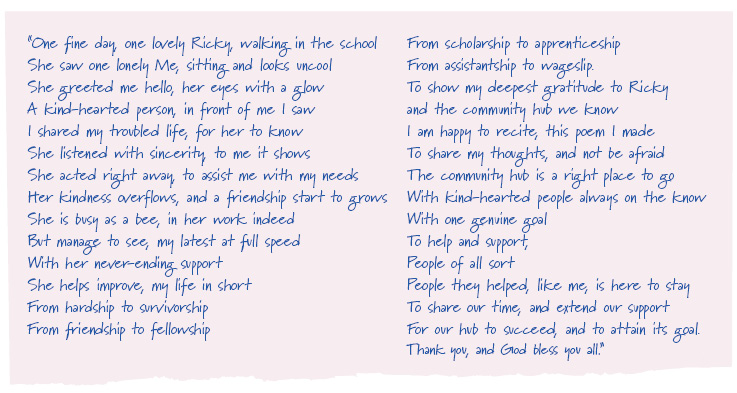 "One fine day, one lovely Ricky, walking in the school
She saw one lonely Me, sitting and looks uncool
She greeted me hello, her eyes with a glow
A kind-hearted person, in front of me I saw
I shared my troubled life, for her to know
She listened with sincerity, to me it shows
She acted right away, to assist me with my needs
Her kindness overflows, and a friendship start to grows
She is busy as a bee, in her work indeed
But manage to see, my latest at full speed
With her never-ending support
She helps improve, my life in short
From hardship to survivorship
From friendship to fellowship
From scholarship to apprenticeship
From assistantship to wageslip.
To show my deepest gratitude to Ricky
and the community hub we know
I am happy to recite, this poem I made
To share my thoughts, and not be afraid
The community hub is a right place to go
With kind-hearted people always on the know
With one genuine goal
To help and support,
People of all sort
People they helped, like me, is here to stay
To share our time, and extend our support
For our hub to succeed, and to attain its goal.
Thank you, and God bless you all."